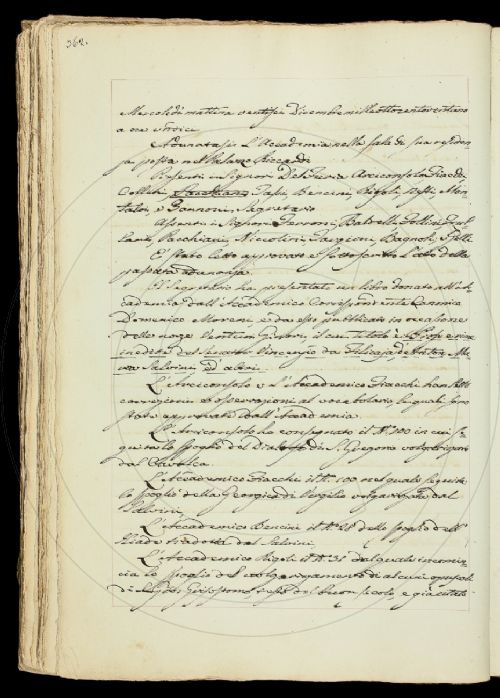 362.
Mercoledì mattina ventisei Dicembre milleottocentoventuno
a ore undici
Adunatasi L'Accademia nelle sale di sua residen-
za posta nel Palazzo Riccardi
Presenti i Signori Del Furia Arciconsolo, Fiacchi,
Collini, Tassi, Bencini, Rigoli,
e Zannoni Segretario
Assenti i Signori Ferroni, Baldelli, Follini,
Pacchiani, Niccolini, Targioni, Bagnoli, e
E' stato letto approvato e sottoscritto L'atto della
passata adunanza.
Il Segretario ha presentato un libro donato all'Ac-
cademia dall'Accademico Corrispondente Canonico
Domenico Moreni e da esso pubblicato in occasione
delle nozze Ginori, il cui titolo è Prose e rime
inedite del Senator Vincenzio da Filicaja d'Anton Ma-
ria Salvini ed altri.
L'Arciconsolo e L'Accademico Fiacchi han letto
correzioni ed osservazioni al vocabolario, le quali sono
state approvate dall'Accademia.
L'Arciconsolo ha consegnato il N. 100 in cui se-
guita lo spoglio del Dialogo di S. Gregorio volgarizzato
dal Cavalca.
L'Accademico Fiacchi il N. 100 nel quale seguita
lo spoglio della Georgica di Vergilio volgarizzata dal
Salvini.
L'Accademico Bencini il N. 28 dello spoglio dell'
Iliade tradotta dal Salvini.
L'Accademico Rigoli il N. 31 dal quale incomin-
cia lo spoglio del volgarizzamento di alcuni opuscoli
di S. Gio. Grisostomo del buon secolo, e già citati